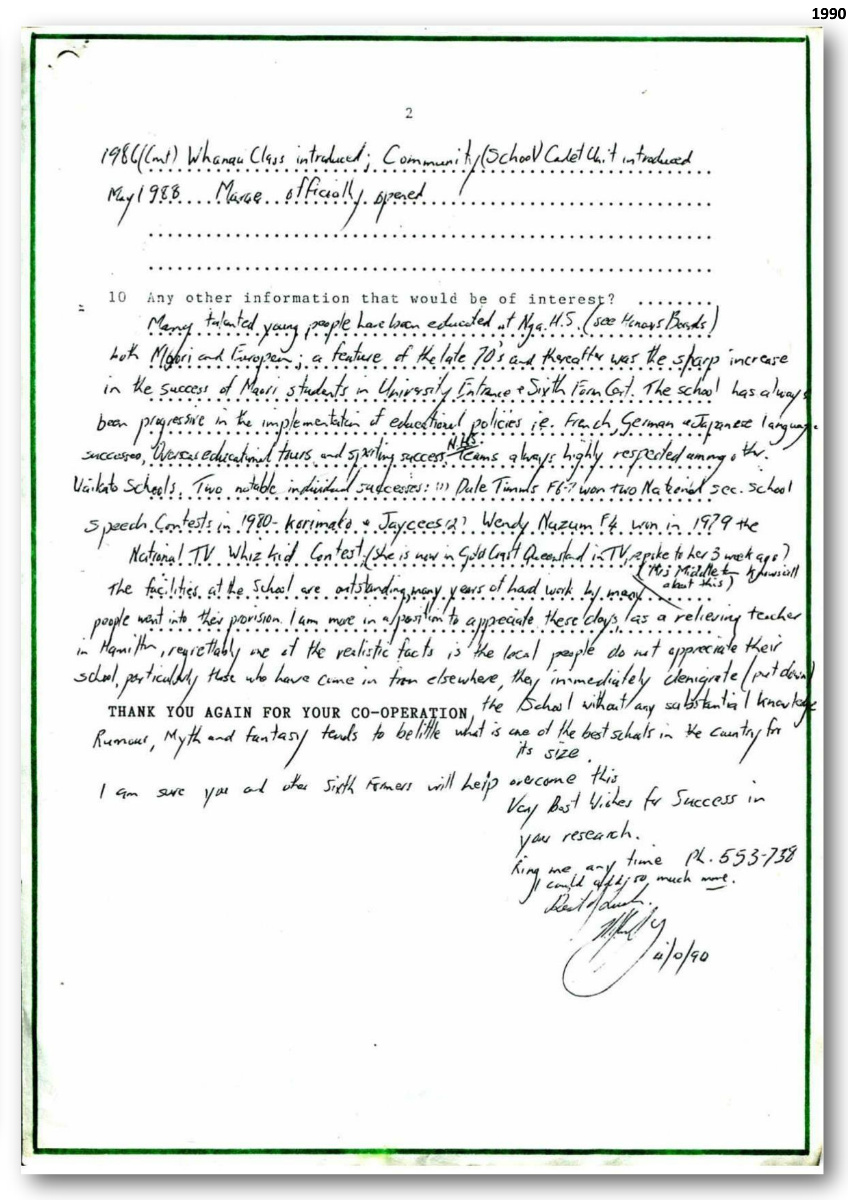 1990
2
1986 (Cont) Whanau Class introduced; Community (School) Cadet Unit introduced
May 1988 Marae officially opened
10 Any other information that would be of interest? ........
Many talented young people have been educated at Nga. H.S. (see Honours Boards)
both Maori and European; a feature of the late 70's and thereafter was the sharp increase
in the success of Maori students in University Entrance & Sixth Form Cert. The school has always
been progressive in the implementation of educational policies ie. French, German & Japanese language
successes, Overseas educational tours and sporting success. N.H.S. Teams always highly respected among other
Waikato Schools. Two notable individual successes: (1) Dale Timms F6-7 won two National sec. school
Speech Contests in 1980 - Korimako & Jaycees (2) Wendy Nuzum F4 won in 1979 the
National TV Whiz Kid Contest (She is now in Gold Coast Queensland in TV, spoke to her 3 week ago?
(Mrs Middleton knows all about this)
The facilities at the School are outstanding, many years of hard work by many
people went into their provision. I am more in a position to appreciate these days, as a relieving teacher
in Hamilton, regrettably one of the realistic facts is the local people do not appreciate their
school, particularly those who have come in from elsewhere, they immediately denigrate (put down)
the School without any substantial knowledge
THANK YOU AGAIN FOR YOUR CO-OPERATION
Rumour, Myth and fantasy tends to belittle what is one of the best schools in the country for
its size.
I am sure you and other Sixth Formers will help overcome this
Very Best Wishes for Success in
your research.
Ring me any time Ph. 553-738
I could add so much more.
Best of Luck.
/90